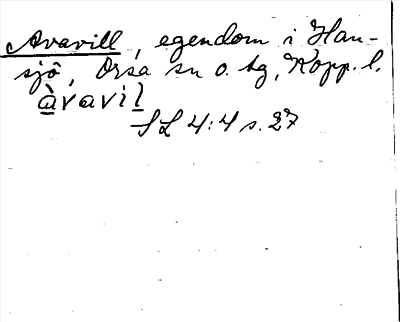 Avavill, egendom i Han-
sjö, Orsa sn o. tg, Kopp. l.
àvavil
SL 4:4 s. 27